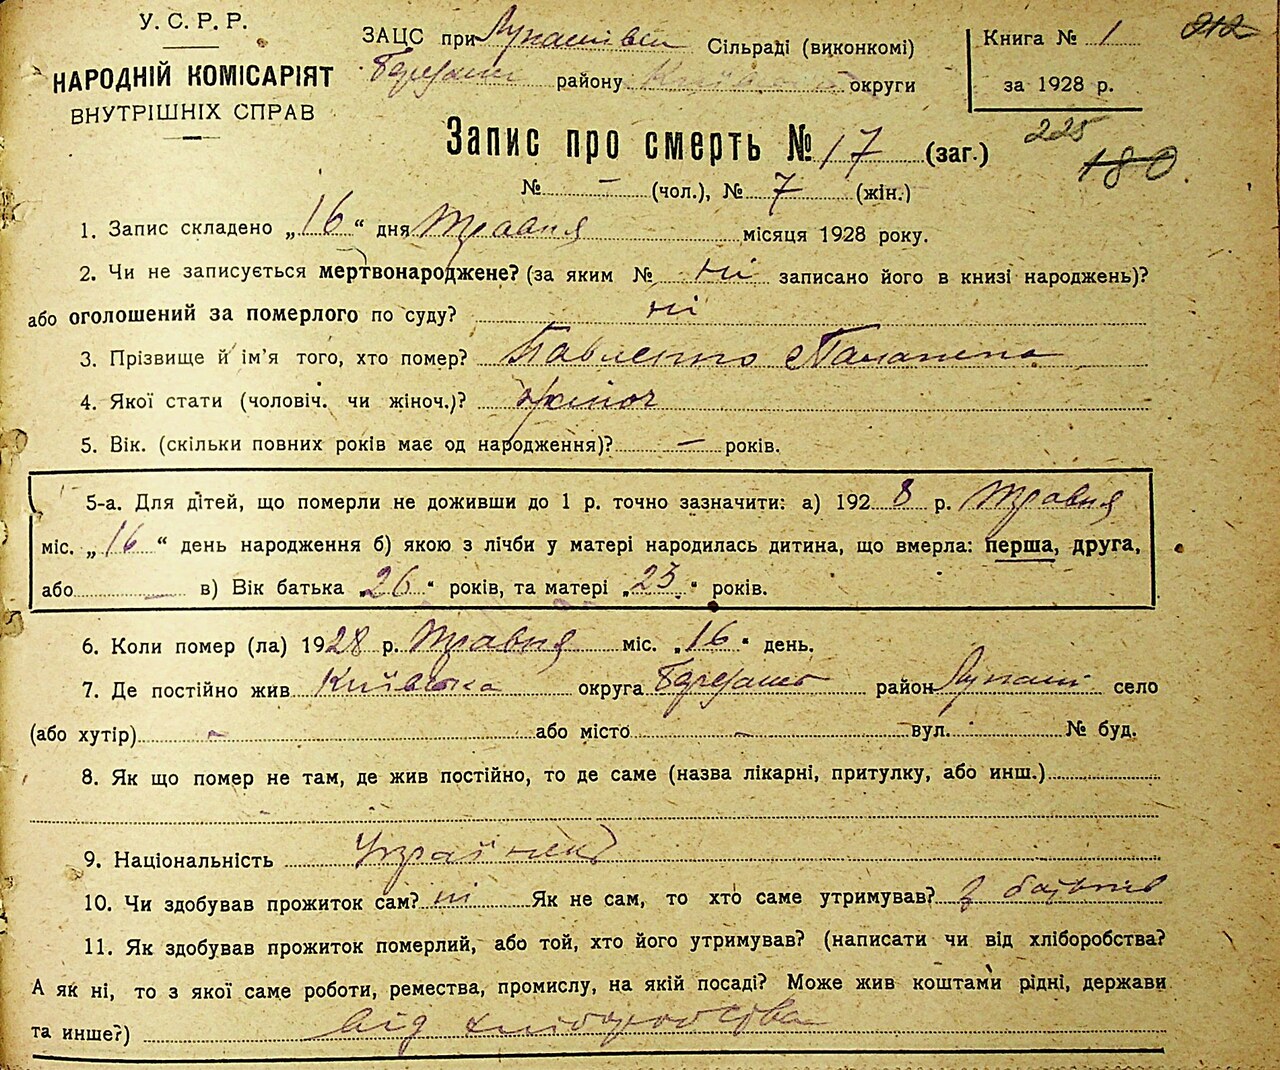 У. С. Р. Р.
НАРОДНІЙ КОМІСАРІЯТ
ВНУТРІШНІХ СПРАВ
ЗАЦС при Лукашівск Сільраді (виконкомі)
району Київської округи
Книга № 1
за 1928 р.
212
225
180
Запис про смерть № 17 (заг.)
№ – (чол.), № 7 (жін.)
1. Запис складено „16“ дня Травня місяця 1928 року.
2. Чи не записується мертвонароджене? (за яким № ні записано його в книзі народжень)?
або оголошений за померлого по суду? ні
3. Прізвище й ім’я того, хто помер? Павленко
4. Якої стати (чоловіч. чи жіноч.)? жіноч
5. Вік. (скільки повних років має од народження)? – років.
5-а. Для дітей, що померли не доживши до 1 р. точно зазначити: а) 1928 р. Травня
міс. „16“ день народження б) якою з лічби у матері народилась дитина, що вмерла: перша, друга,
або – в) Вік батька „26“ років, та матері „23“ років.
6. Коли помер (ла) 1928 р. Травня міс. „16“ день.
7. Де постійно жив Київська округа район Лукаші село
(або хутір) – або місто – вул. № буд.
8. Як що помер не там, де жив постійно, то де саме (назва лікарні, притулку, або инш.)
9. Національність
10. Чи здобував прожиток сам? ні Як не сам, то хто саме утримував? з батьків
11. Як здобував прожиток померлий, або той, хто його утримував? (написати чи від хліборобства?
А як ні, то з якої саме роботи, ремества, промислу, на якій посаді? Може жив коштами рідні, держави
та инше?) від хліборобства